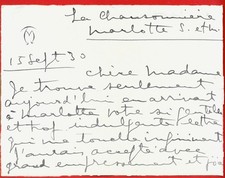 La Chansonnière
Marlotte S. et M.
M
15 Sept 30
Chère Madame
Je trouve seulement
aujourd'hui en arrivant
à Marlotte votre si gentille
et trop indulgente lettre
qui me touche infiniment
J'aurais accepté avec
grand empressement et joie